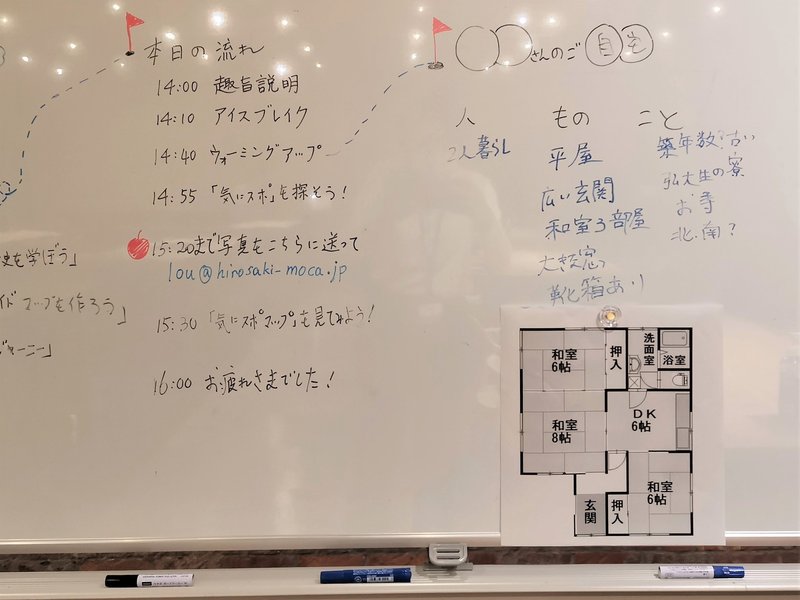 本日の流れ
14:00 趣旨説明
14:10 アイスブレイク
14:40 ウォーミングアップ
14:55 「気にスポ」を探そう!
15:20まで写真をこちらに送って
lou@hirosaki-moca.jp
15:30 「気にスポマップ」を見てみよう!
16:00 お疲れさまでした!
史を学ぼう」
イドマップを作ろう」
ジャーニー」
〇〇さんのご自宅
人 もの こと
2人暮らし
平屋
広い玄関
和室3部屋
大きな窓
靴箱あり
築年数?古い
弘大生の寮
お寺
北.南?
和室
6帖
押入
洗面室
浴室
和室
8帖
DK
6帖
和室
6帖
玄関
押入